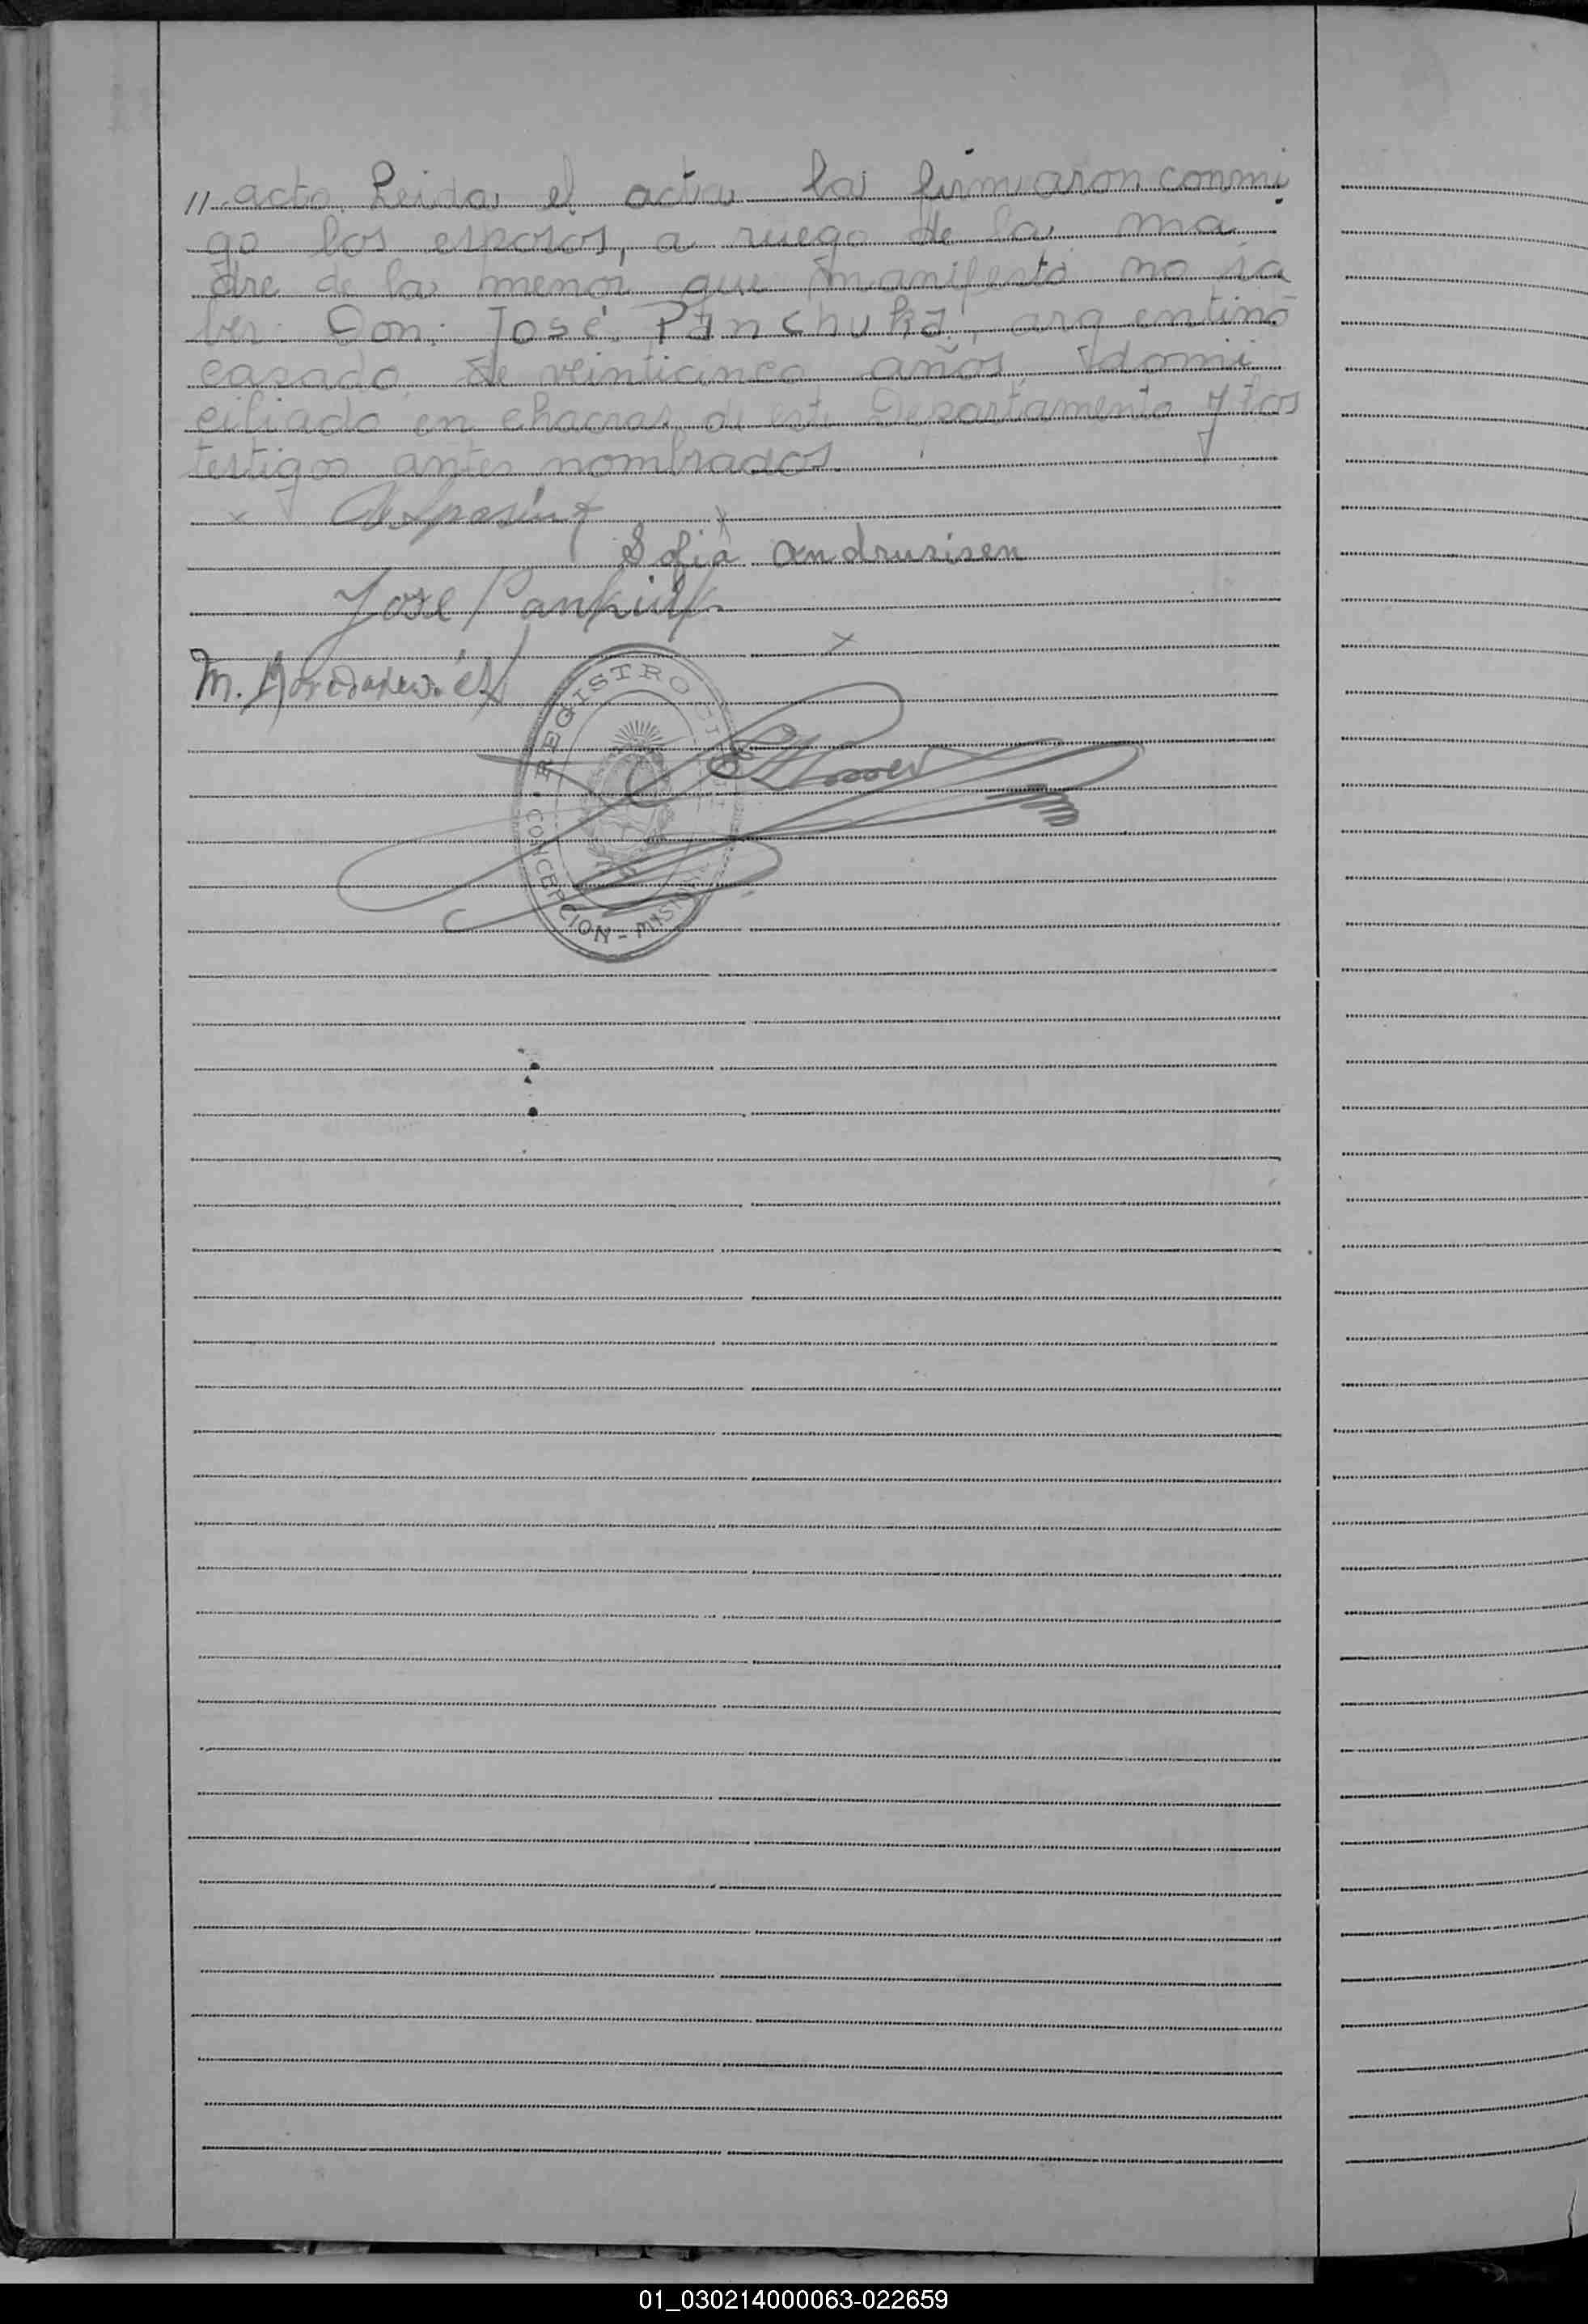 " acto. Leida el acta la firmaron conmi
go los esposos, a ruego de la ma
dre de la menor que manifestó no sa
ber: Don: José Panchuka, argentino
casado, de veinticinco años, domi
ciliado en chacras de este Departamento y los
testigos antes nombrados.
Sofia Andrusisen
José
M.
REGISTRO CIVIL
CONCEPCION - MISIONES
01_030214000063-022659